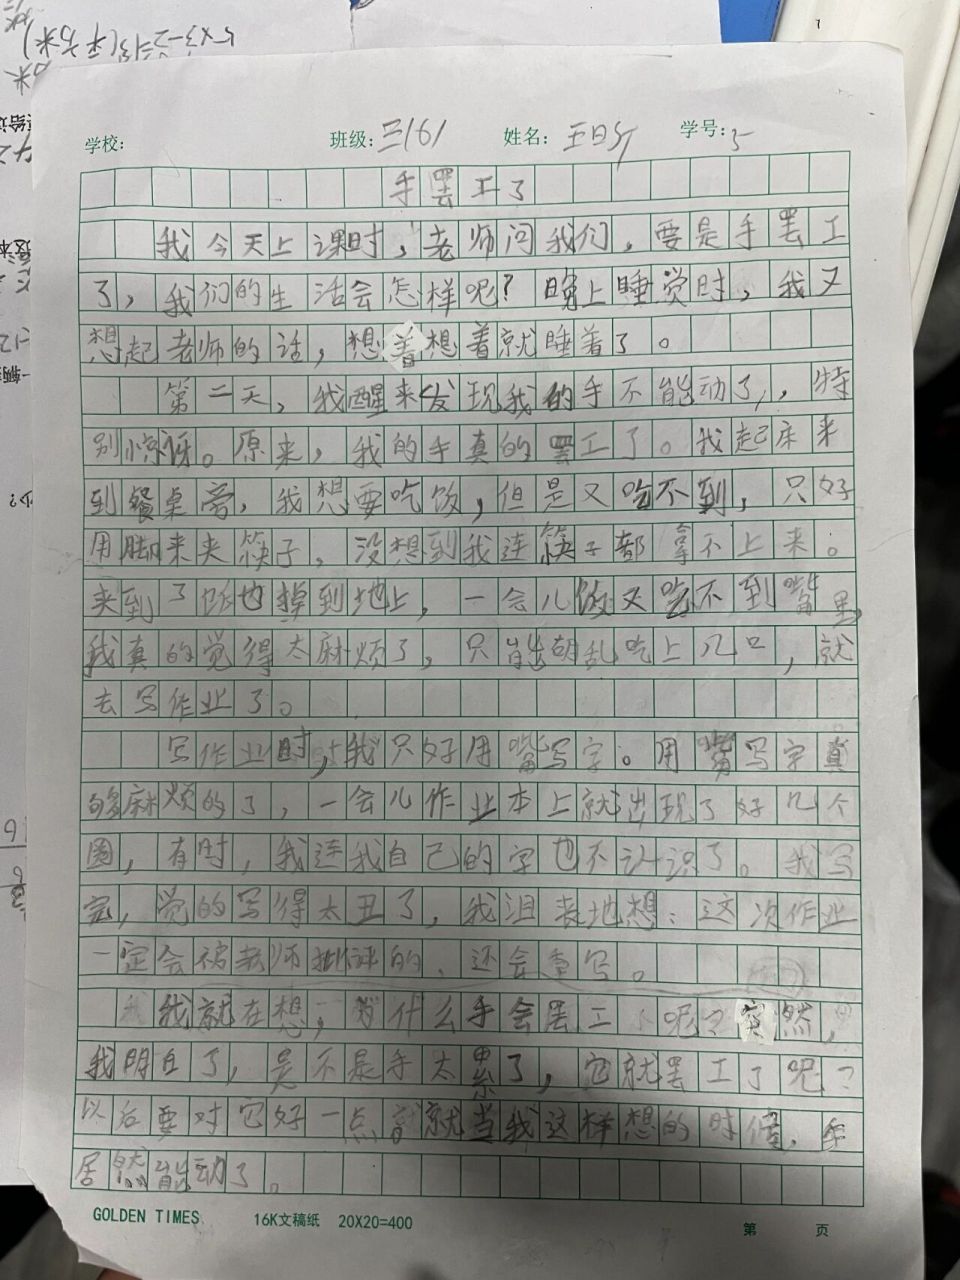 5×3-2=13(平方米)
学校： 班级：三(6) 姓名： 学号：5
手罢工了
我今天上课时，老师问我们，要是手罢工
了，我们的生活会怎样呢？晚上睡觉时，我又
想起老师的话，想着想着就睡着了。
第二天，我醒来发现我的手不能动了，特
别惊讶。原来，我的手真的罢工了。我起床来
到餐桌旁，我想要吃饭，但是又吃不到，只好
用脚来夹筷子，没想到我连筷子都拿不上来。
夹到了饭也掉到地上，一会儿饭又吃不到嘴里，
我真的觉得太麻烦了，只能胡乱吃上几口，就
去写作业了。
写作业时，我只好用嘴写字。用嘴写字真
够麻烦的了，一会儿作业本上就出现了好几个
圈，有时，我连我自己的字也不认识了。我写
完，觉的写得太丑了，我沮丧地想：这次作业
一定会被老师批评的，还会重写。
我就在想，为什么手会罢工呢？突然，
我明白了，是不是手太累了，它就罢工了呢？
以后要对它好一点就当我这样想的时候，手
居然能动了。
GOLDEN TIMES 16K文稿纸 20X20=400 第 页